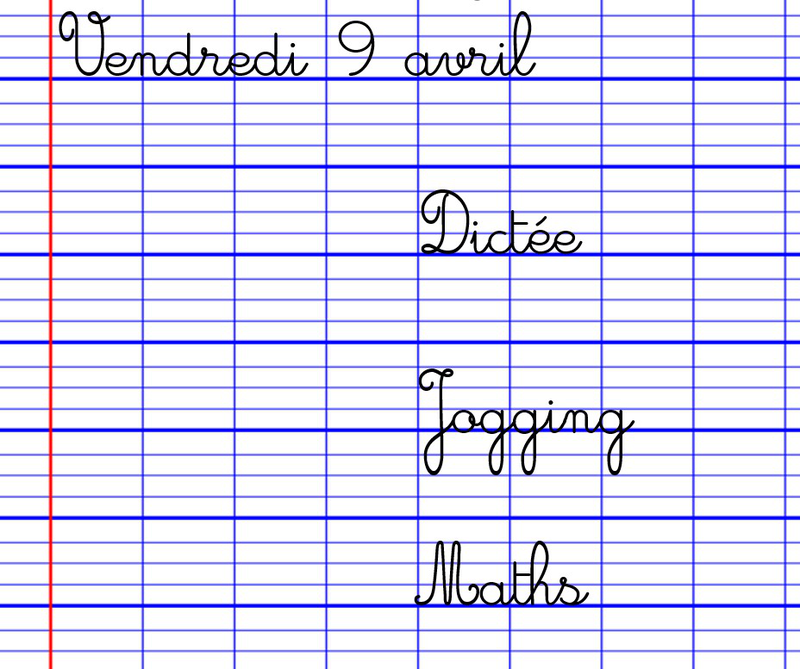 Vendredi 9 avril
Dictée
Jogging
Maths